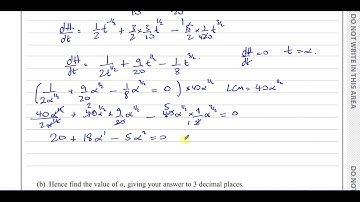 dH/dt = 1/2 t^-1/2 + 3/2 × 3/10 t^1/2 - 5/2 × 1/20 t^3/2
dH/dt = 1/2t^1/2 + 9/20 t^1/2 - 1/8 t^3/2 dH/dt = 0 t = α
(1/2α^1/2 + 9/20 α^1/2 - 1/8 α^3/2 = 0) × 40α^1/2 LCM = 40α^1/2
40α^1/2/2α^1/2 + 40α^1/2 × 9/20 α^1/2 - 40α^1/2 × 1/8 α^3/2 = 0
20 + 18α^1 - 5α^2 = 0
(b) Hence find the value of α, giving your answer to 3 decimal places.
DO NOT WRITE IN THIS AREA
DO NOT
DO NO